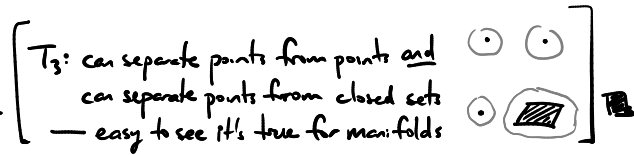 T₃: can separate points from points and
can separate points from closed sets
— easy to see it's true for manifolds